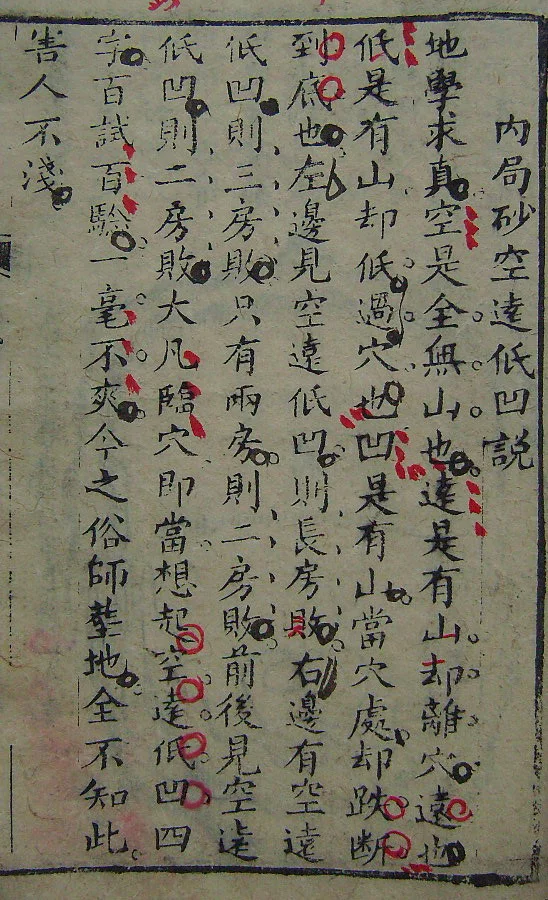 內局砂空遠低凹説
地學求真空是全無山也遠是有山却離穴遠也
低是有山却低過穴也凹是有山當穴處却跌断
到底也左邊見空遠低凹則長房敗右邊有空遠
低凹則三房敗只有兩房則二房敗前後見空遠
低凹則二房敗大凡臨穴即當想起空遠低凹四
字百試百驗一毫不爽今之俗師塟地全不知此
害人不淺